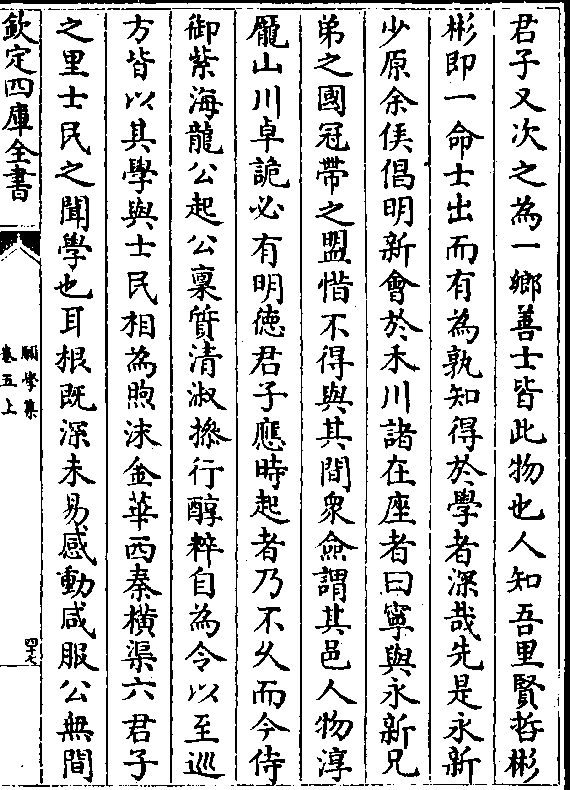 君子又次之為一鄉善士皆此物也人知吾里賢哲彬
彬即一命士出而有為孰知得於學者深哉先是永新
少原余侯倡明新會於禾川諸在座者曰寧與永新兄
弟之國冠帶之盟惜不得與其間衆僉謂其邑人物淳
龎山川卓詭必有明德君子應時起者乃不乆而今侍
御紫海龍公起公稟質清淑操行醇粹自為令以至巡
方皆以其學與士民相為煦沫金華西秦橫渠六君子
之里士民之聞學也耳根既深未易感動咸服公無間
欽定四庫全書
願學集
卷五上
四十七